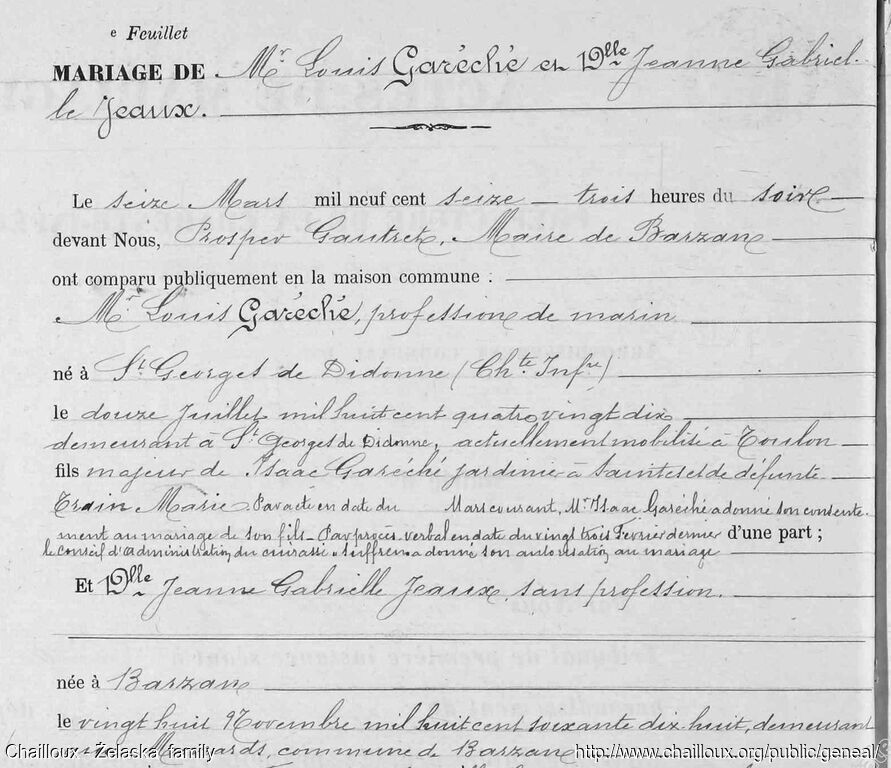 e Feuillet
MARIAGE DE Mr Louis Garéché et Dlle Jeanne Gabriel-
le Jeaux.
Le seize Mars mil neuf cent seize – trois heures du soir
devant Nous, Prosper Gautret, Maire de Barzan
ont comparu publiquement en la maison commune :
Mr Louis Garéché, profession de marin
né à St Georges de Didonne (Chte Infre)
le douze Juillet mil huit cent quatre vingt dix
demeurant à St Georges de Didonne, actuellement mobilisé à Toulon
fils majeur de Isaac Garéché jardinier à Saintes et de défunte
Marie. Par acte en date du Mars courant, Mr Isaac Garéché a donné son consente-
ment au mariage de son fils – Par procès verbal en date du vingt trois Février dernier d'une part ;
le conseil d'administration du cuirassé Suffren a donné son autorisation au mariage
Et Dlle Jeanne Gabrielle Jeaux, sans profession.
née à Barzan
le vingt huit Novembre mil huit cent soixante dix huit, demeurant
commune de Barzan
Chailloux - Zelaska family http://www.chailloux.org/public/geneal/